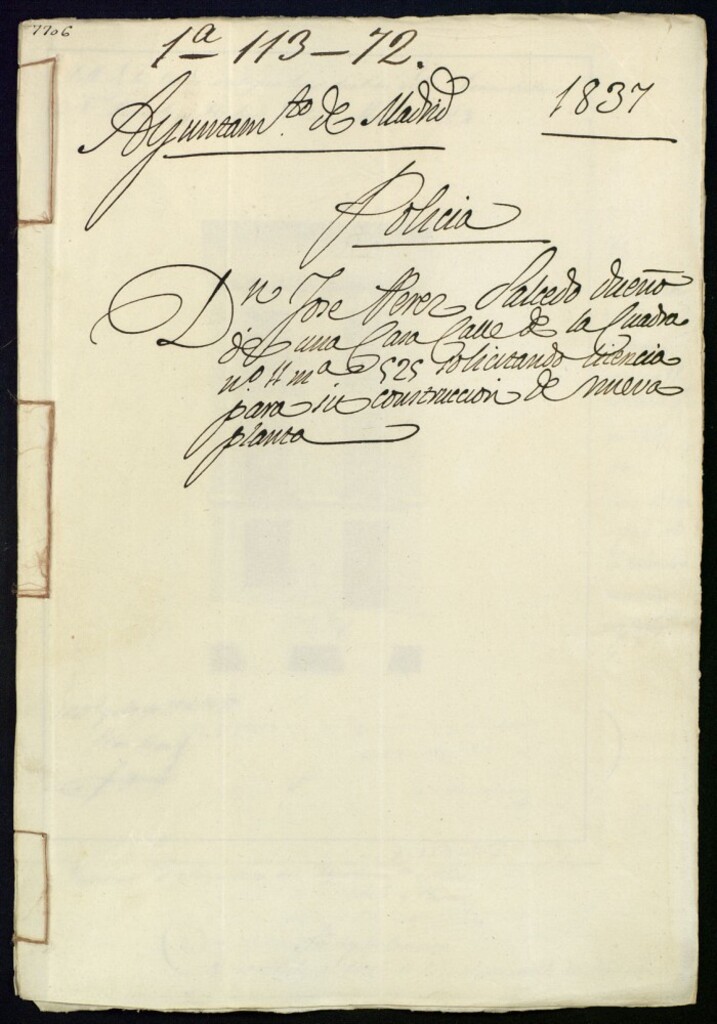 7706
1ª 113-72.
Ayuntamto. de Madrid 1837
Policia
Dn Jose Perez Salcedo dueño
de una Casa Calle de la Cuadra
nº. 11 mª 525 solicitando licencia
para su construccion de nueva
planta